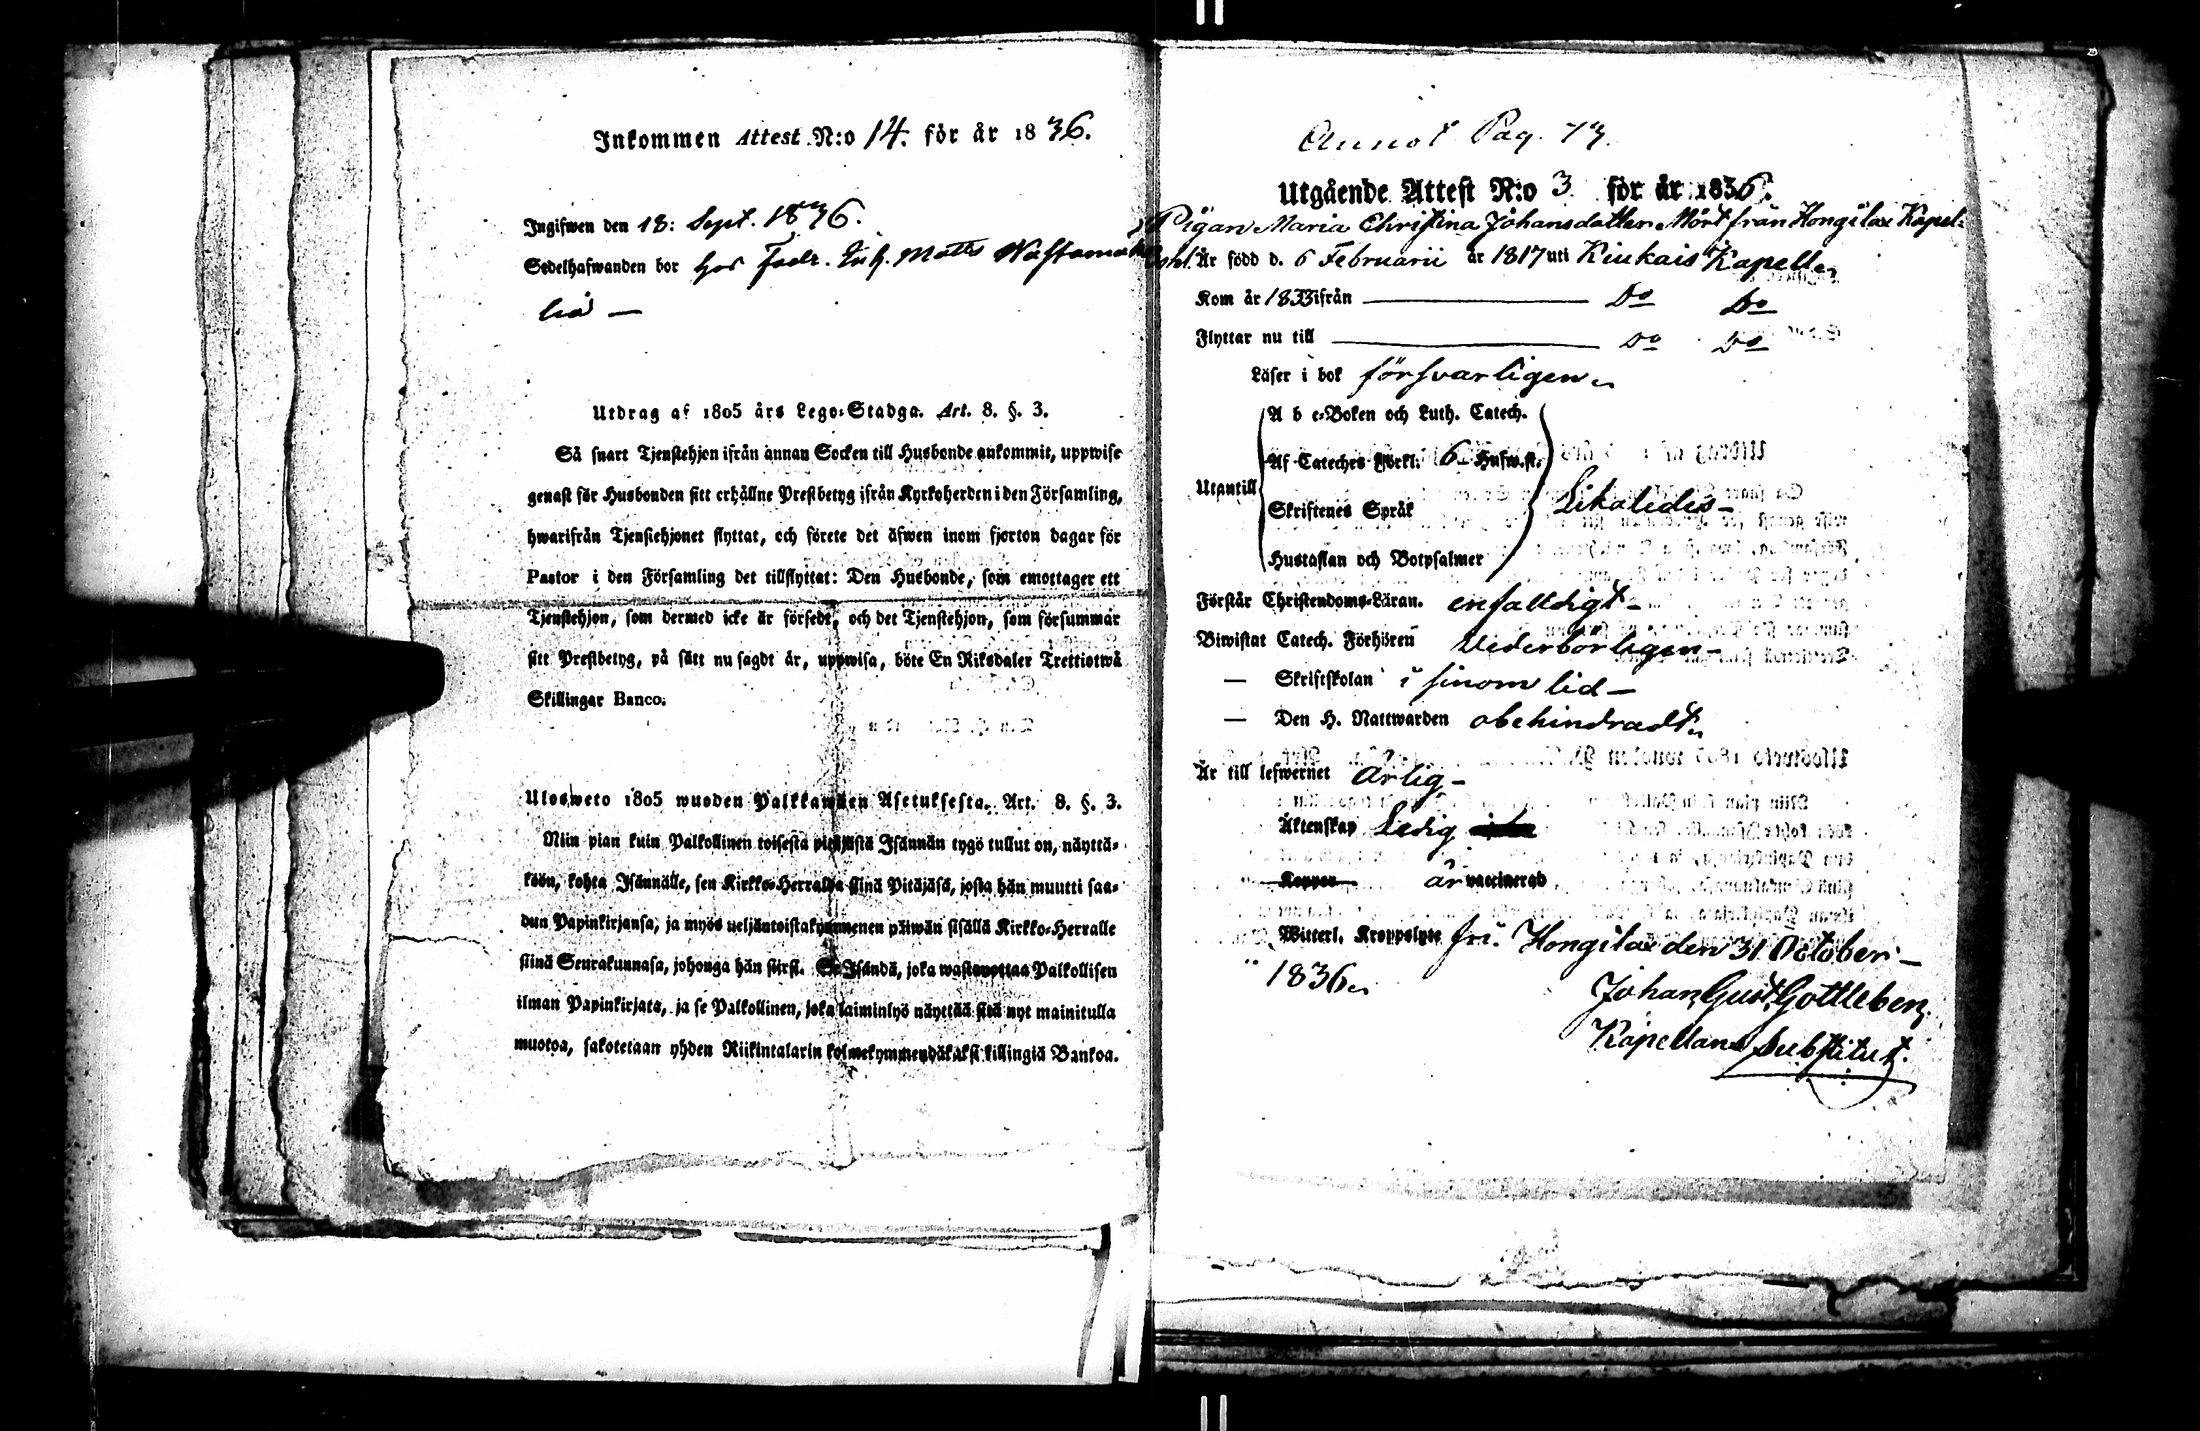 Inkommen Attest N:o 14. för år 1836.
Ingifwen den 18: Sept. 1836.
Sedelhafwanden bor hos Matts
Utdrag af 1805 års Lego-Stadga. Art. 8. §. 3.
Så snart Tjenstehjon ifrån annan Socken till Husbonde ankommit, uppwise
genast för Husbonden sitt erhållne Prestbetyg ifrån Kyrkoherden i den Församling,
hwarifrån Tjenstehjonet flyttat, och förete det äfwen inom fjorton dagar för
Pastor i den Församling det tillflyttat: Den Husbonde, som emottager ett
Tjenstehjon, som dermed icke är försedt, och det Tjenstehjon, som försummar
sitt Prestbetyg, på sätt nu sagdt är, uppwisa, böte En Riksdaler Trettiotwå
Skillingar Banco.
Ulosweto 1805 wuoden Palkkawäen Asetuksesta. Art. 8. §. 3.
Niin pian kuin Palkollinen toisesta pitäjästä Isännän tygö tullut on, näyttä-
köön, kohta Isännälle, sen Kirkko-Herralda siinä Pitäjäsä, josta hän muutti saa-
dun Papinkirjansa, ja myös neljäntoistakymmenen päiwän sisällä Kirkko-Herralle
siinä Seurakunnasa, johonga hän siirsi. Se Isändä, joka wastaottaa Palkollisen
ilman Papinkirjata, ja se Palkollinen, joka laiminlyö näyttää sitä nyt mainitulla
muotoa, sakotetaan yhden Riikintalarin kolmekymmendäkaksi killingiä Bankoa.
Annot Pag. 73.
Utgående Attest N:o 3 för år 1836.
Pigan Maria Christina Johansdotter Mört från Hongilax Kapel-
Är född d. 6 Februarii år 1817 uti Kiukais Kapell
Kom år 1833 ifrån Do Do
Flyttar nu till Do Do
Läser i bok försvarligen
A b c-Boken och Luth. Catech.
Af Cateches Förkl. 6 Hufw.st.
Utantill
Skriftenes Språk
Likaledes
Hustaflan och Botpsalmer
Förstår Christendoms-Läran. enfalldigt
Biwistat Catech. Förhören Vederbörligen
— Skriftskolan i sinom tid
— Den H. Nattwarden obehindradt
Är till lefwernet ärlig
Äktenskap Ledig
Koppor är vaccinerad
Witterl. Kroppslyte fri. Hongilax den 31 October
1836
Johan Gust. Gottleben
Kapellans Substitut.